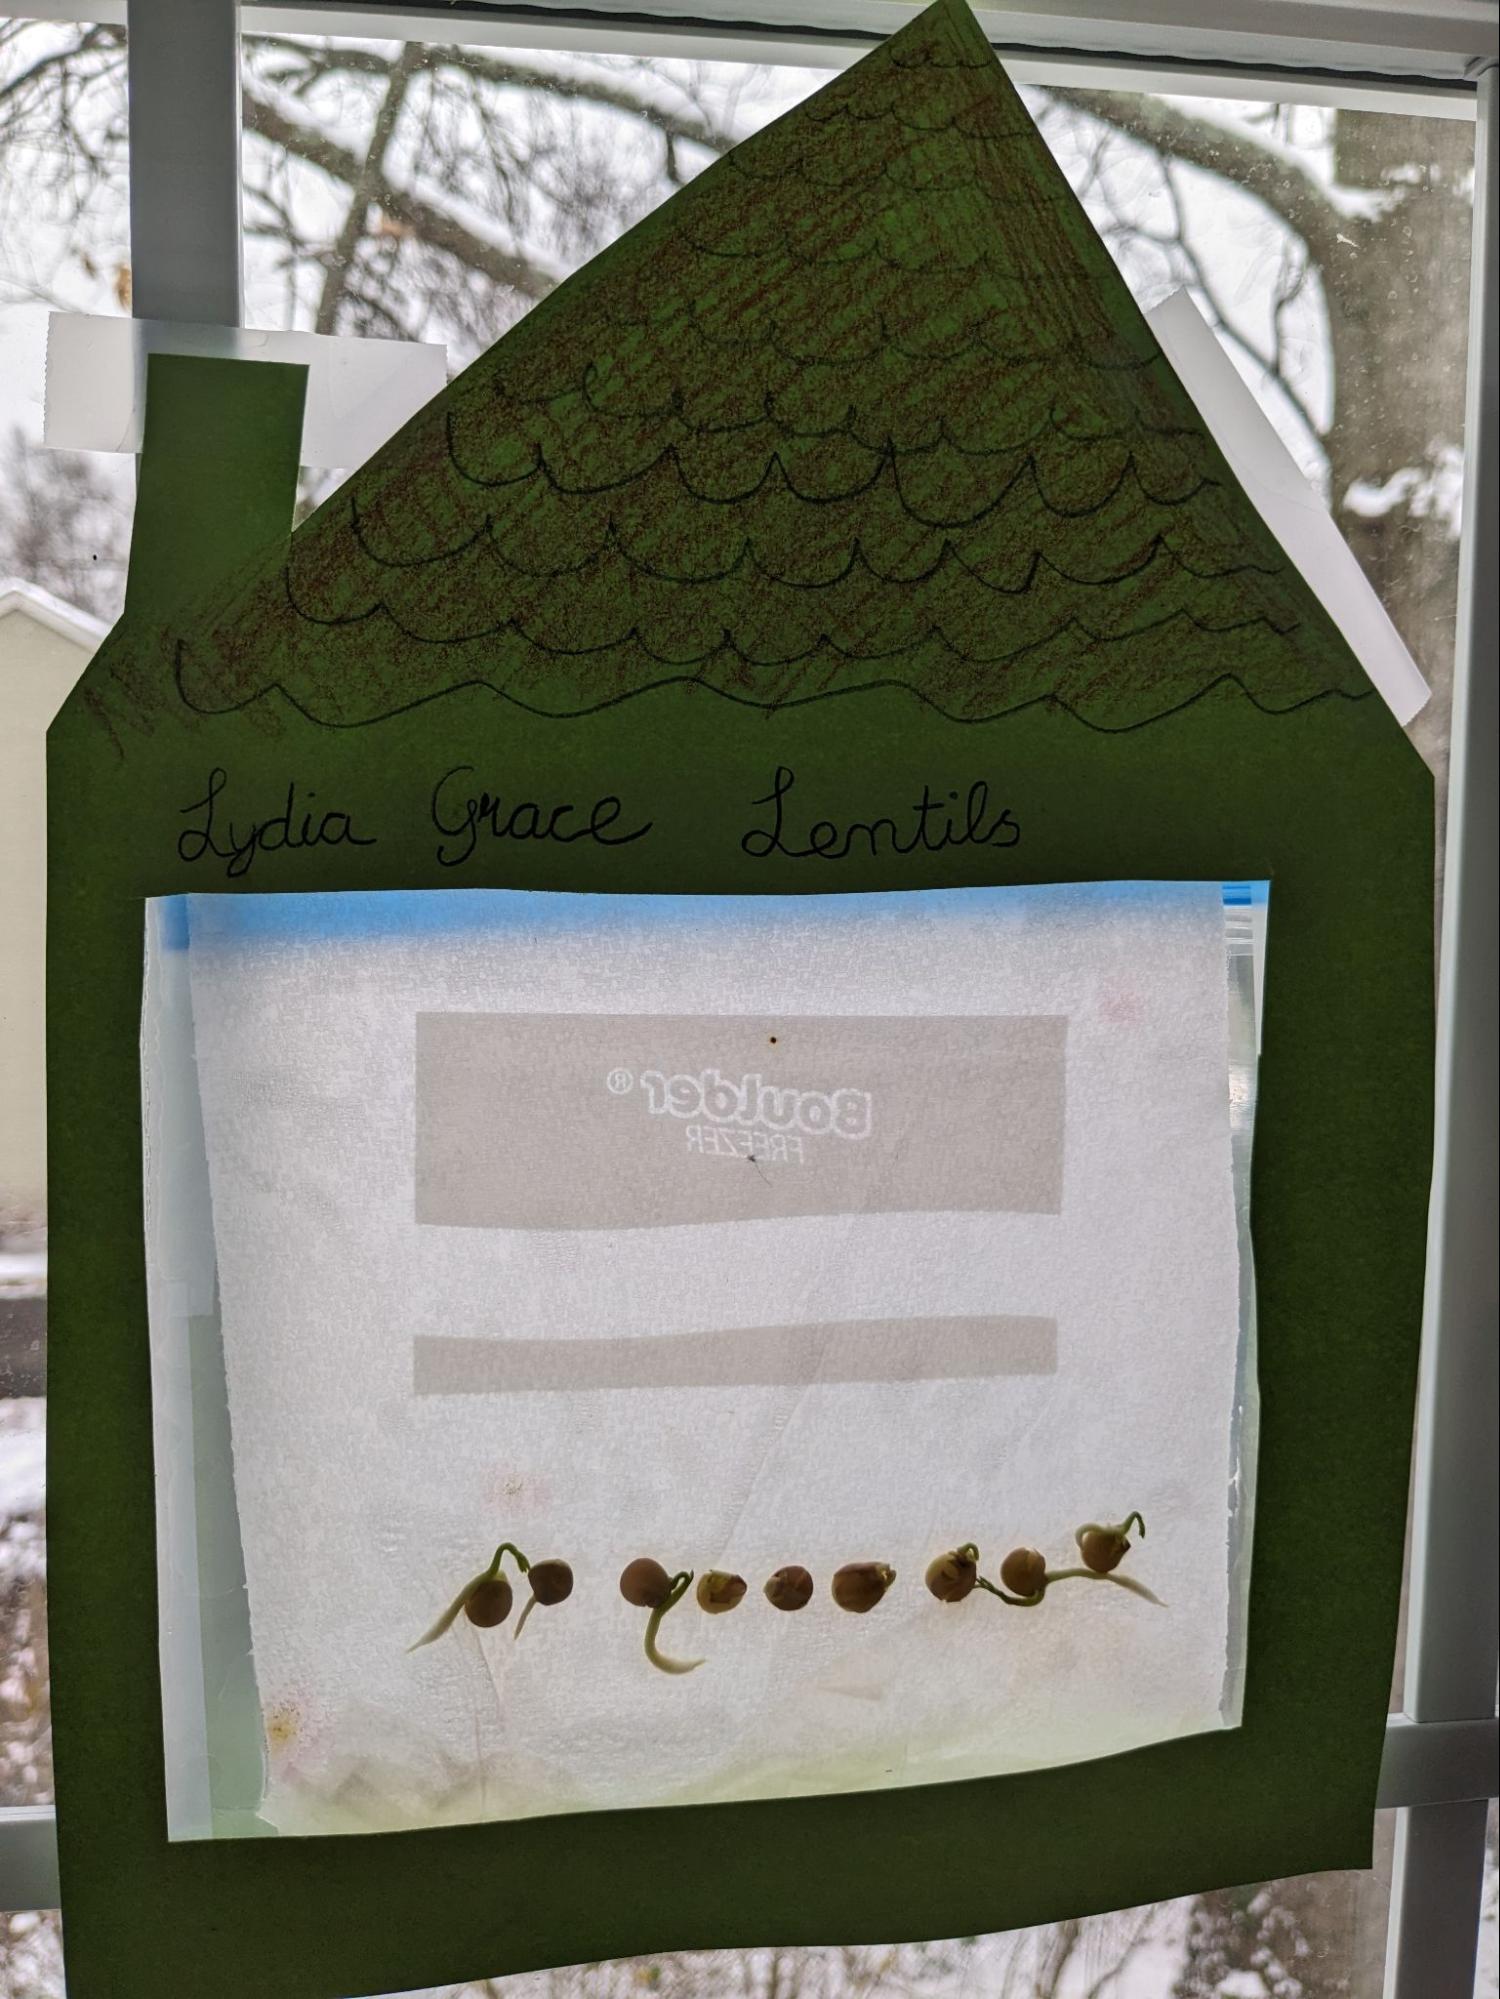 Lydia Grace Lentils
Boulder®
FREEZER